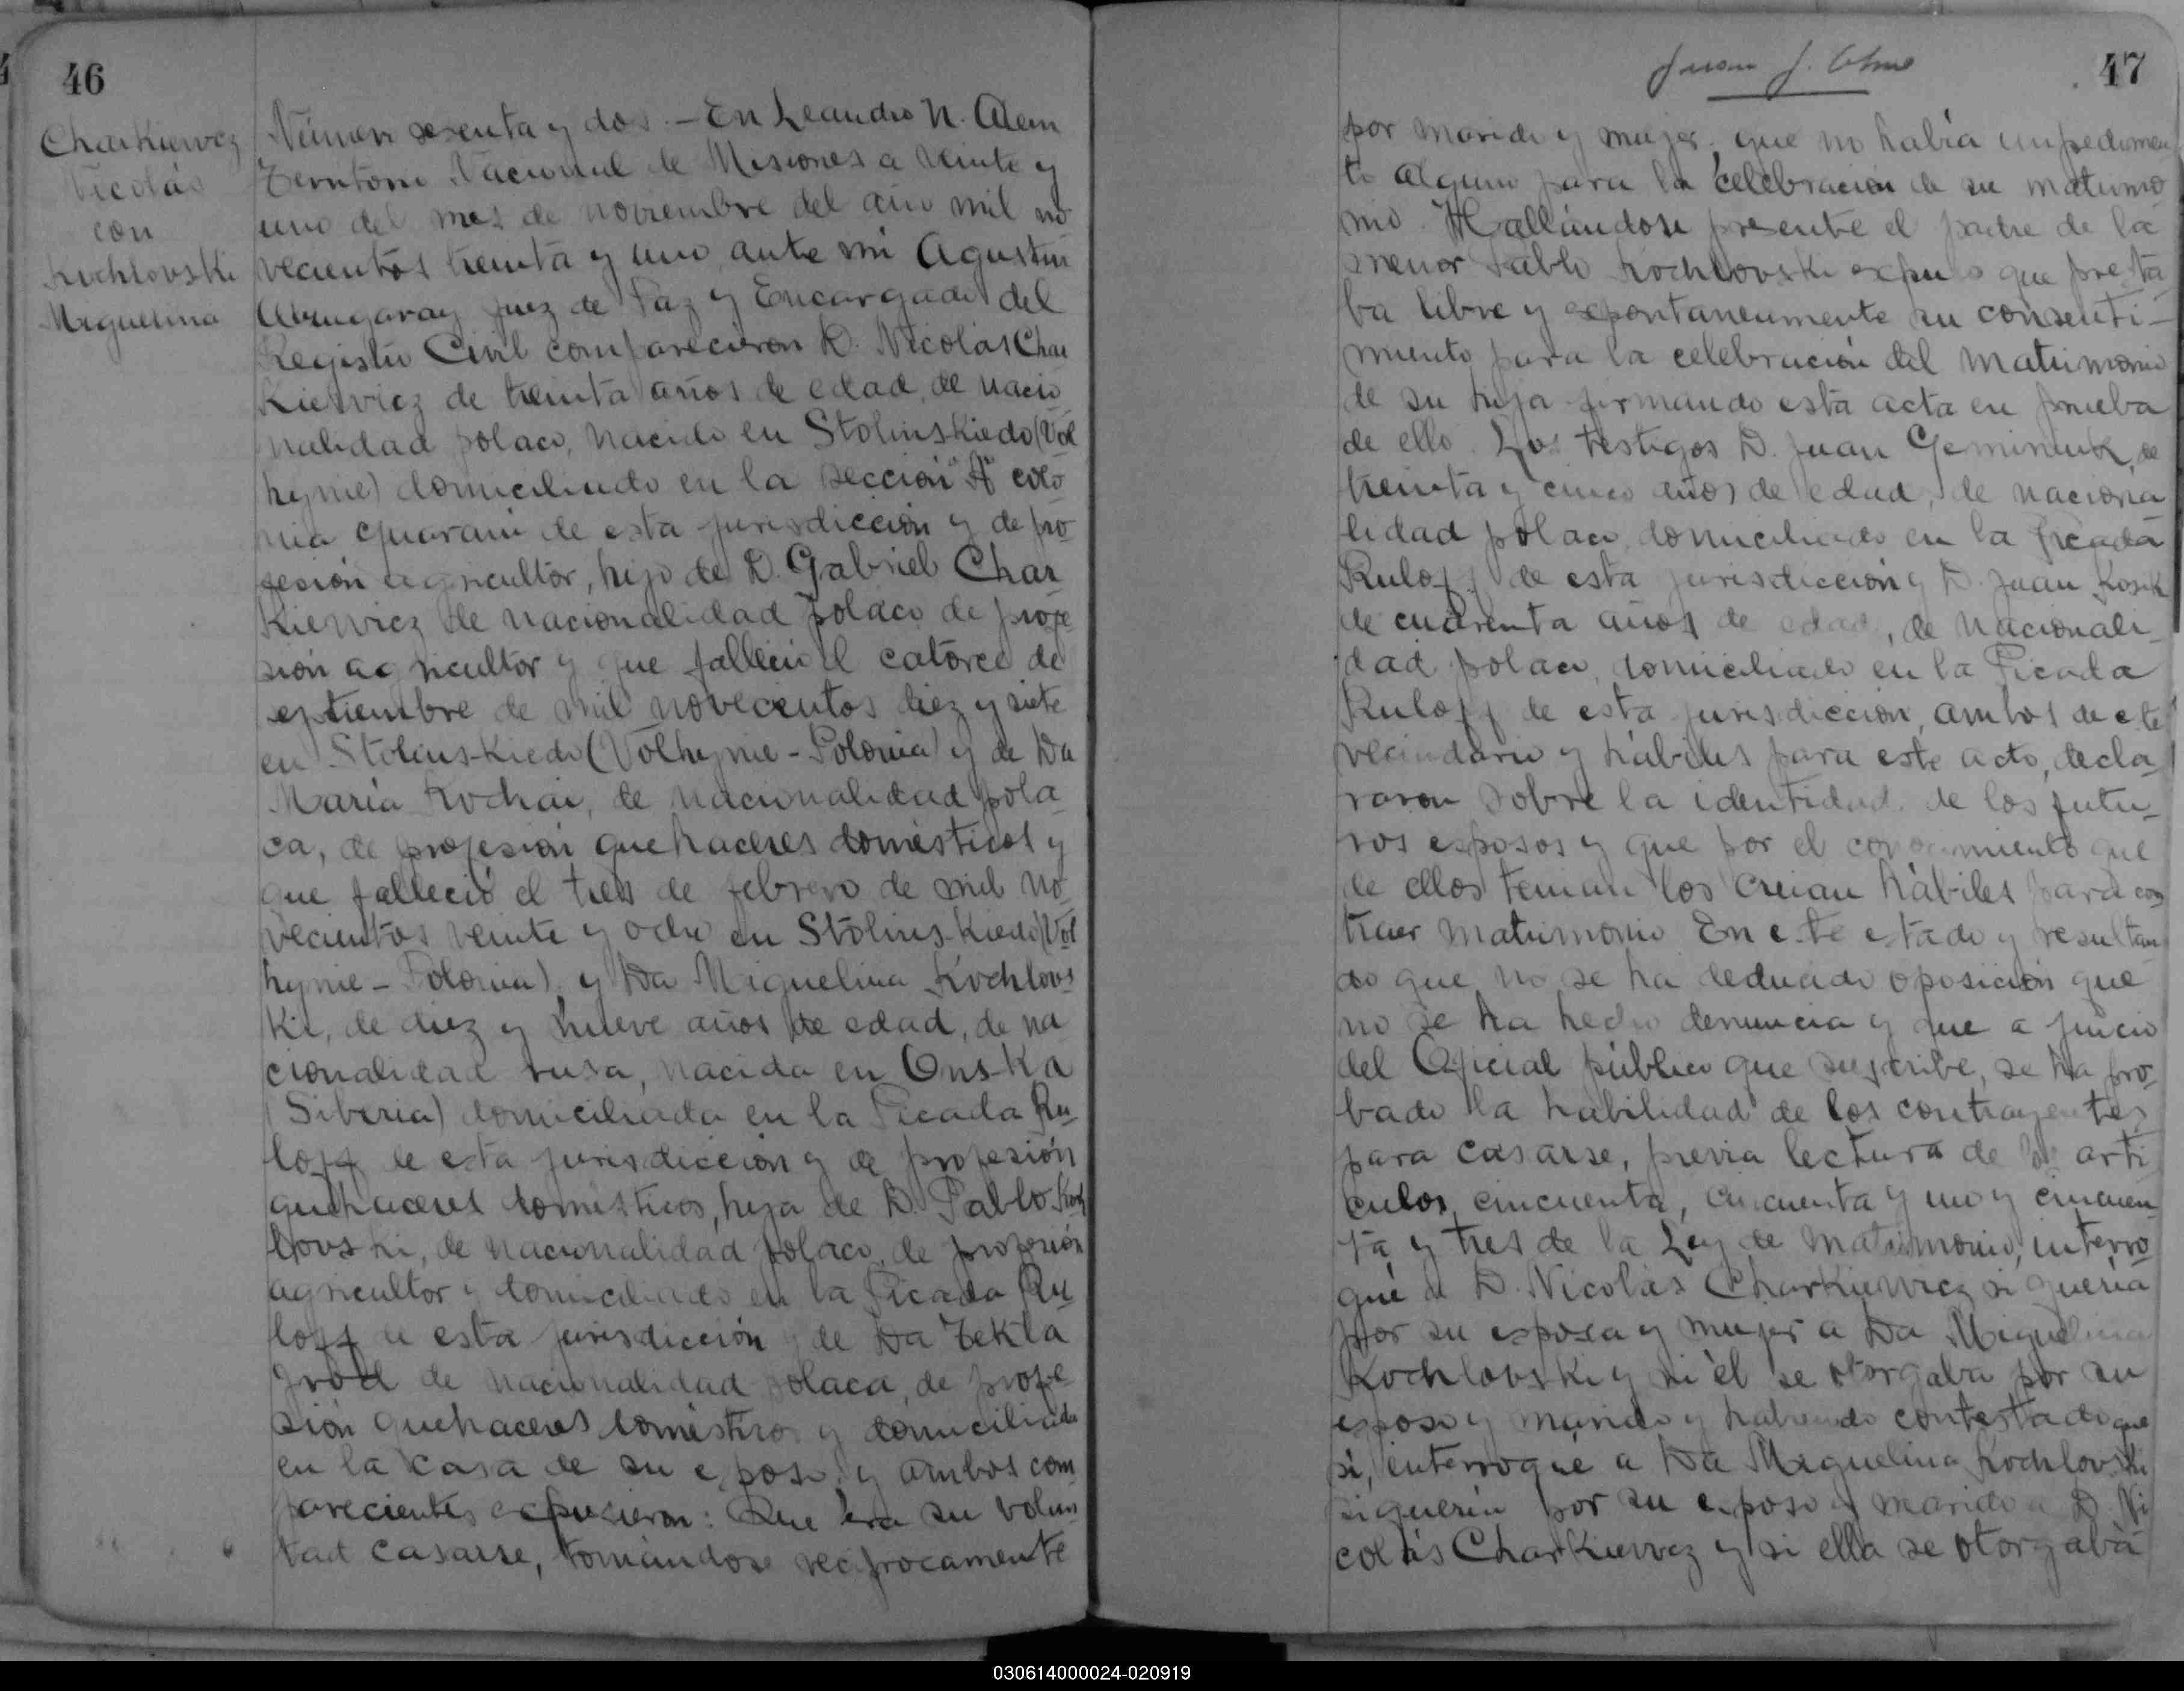 46
Charkiewicz
Nicolás
con
Kochlovski
Miguelina
Número sesenta y dos. - En Leandro N. Alem
Territorio Nacional de Misiones a veinte y
uno del mes de noviembre del año mil no
vecientos treinta y uno, ante mi Agustin
Juez de Paz y Encargado del
Registro Civil comparecieron D. Nicolás Char
Kiewicz de treinta años de edad, de nacio
nalidad polaco, nacido en Stolins-Kiedo (Vol
hynie) domiciliado en la sección "A" colo
nia Guarani de esta jurisdicción y de pro
fesión agricultor, hijo de D. Gabriel Char
Kiewicz de nacionalidad polaco de profe
sión agricultor y que falleció el catorce de
septiembre de mil novecientos diez y siete
en Stolins-Kiedo (Volhynie - Polonia) y de Da
María Kochai, de nacionalidad pola
ca, de profesión quehaceres domésticos y
que falleció el tres de febrero de mil no
vecientos veinte y ocho en Stolins-Kiedo (Vol
hynie - Polonia), y Da Miguelina Kochlovs
ki, de diez y nueve años de edad, de na
cionalidad rusa, nacida en Ons-Ka
(Siberia) domiciliada en la Picada Ru
loff de esta jurisdicción y de profesión
quehaceres domésticos, hija de D. Pablo Koch
lovski, de nacionalidad polaco, de profesión
agricultor y domiciliado en la Picada Ru
loff de esta jurisdicción y de Da Tekla
de nacionalidad polaca, de profe
sión quehaceres domésticos y domiciliada
en la casa de su esposo, y ambos com
parecientes expusieron: Que era su volun
tad casarse, tomándose reciprocamente
Juan J.
47
por marido y mujer, que no había impedimen
to alguno para la celebración de su matrimo
nio. Hallándose presente el padre de la
menor Pablo Kochlovski expuso que presta
ba libre y espontaneamente su consenti-
miento para la celebración del matrimonio
de su hija firmando esta acta en prueba
de ello. Los testigos D. Juan Geminiuk, de
treinta y cinco años de edad, de naciona
lidad polaco, domiciliado en la Picada
Ruloff de esta jurisdicción y D. Juan Kosik
de cuarenta años de edad, de nacionali-
dad polaco, domiciliado en la Picada
Ruloff de esta jurisdicción, ambos de este
vecindario y hábiles para este acto, decla
raron sobre la identidad de los futu-
ros esposos y que por el conocimiento que
de ellos tenian los creian hábiles para con
traer matrimonio. En este estado y resultan
do que no se ha deducido oposición que
no se ha hecho denuncia y que a juicio
del Oficial público que suscribe, se ha pro-
bado la habilidad de los contrayentes
para casarse, previa lectura de los artí
culos cincuenta, cincuenta y uno y cincuen
ta y tres de la Ley de matrimonio, interro
gué a D. Nicolás Charkiewicz si quería
por su esposa y mujer a Da Miguelina
Kochlovski y si él se otorgaba por su
esposo y marido y habiendo contestado que
si, interrogué a Da Miguelina Kochlovski
si quería por su esposo y marido a D. Ni
colás Charkiewicz y si ella se otorgaba
030614000024-020919